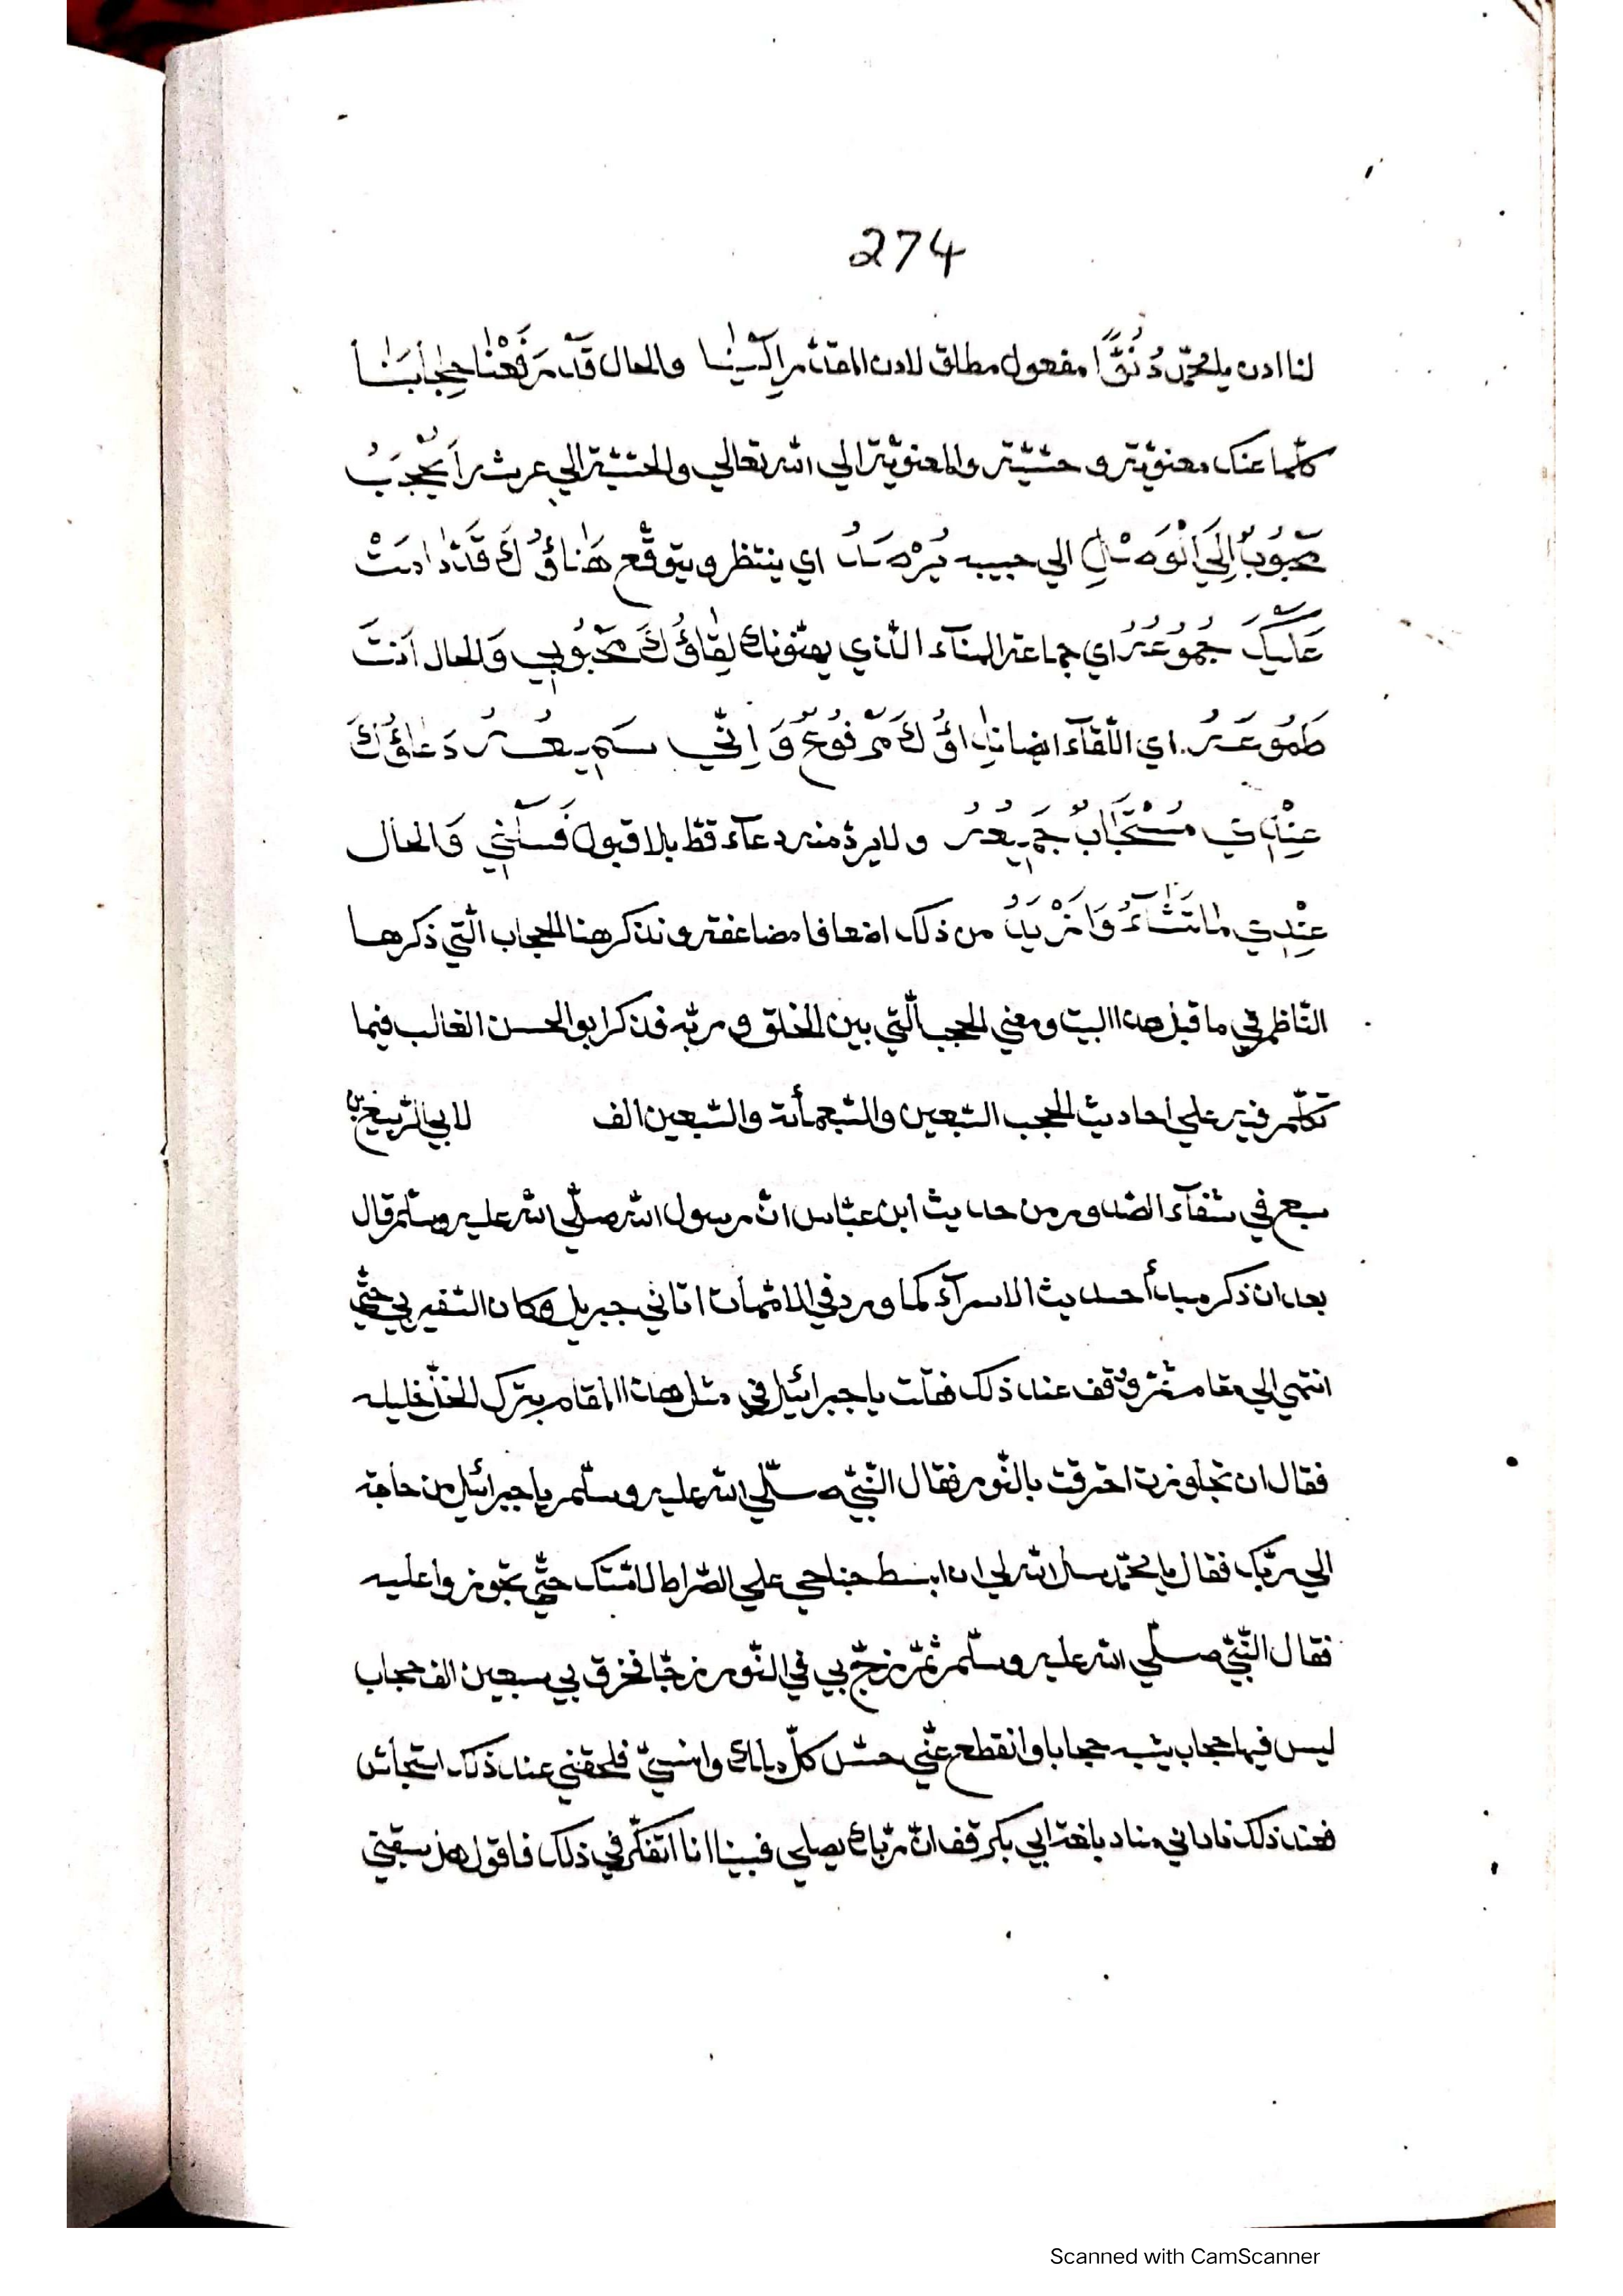 274
لنا ادن يا محمّد دُنُوًّا مفعول مطلق لادن المقدّر إِلَيْنَا والحال قَدْ رَفَعْنَا حِجَابَنَا
كلّها عنك معنويّة وحسّيّة والمعنويّة الي الله تعالي والحسّيّة الي عرشه أَيُحْجَبُ
مَحْبُوبٌ إِلَي الْوَصْلِ الي حبيبه يُرْصَدُ اي ينتظر ويتوقّع هَنَاؤُكَ قَدْ دَامَتْ
عَلَيْكَ جُمُوعُهُ اي جماعة الهناء الذي يهنّونك لِقَاؤُكَ مَحْبُوبِي وَالحال أَنْتَ
طَمُوعُهُ اي اللّقآء ايضا نِدَاؤُكَ مَرْفُوعٌ وَإِنِّي سَمِيعُهُ دَعَاؤُكَ
عِنْدِي مُسْتَجَابٌ جَمِيعُهُ ولا يردّ منه دعآء قطّ بلا قبول فَسَلْنِي وَالحال
عِنْدِي مَا تَشَاءُ وَأَزْيَدُ من ذلك اضعافا مضاعفة ونذكر هنا الحجاب الّتي ذكرها
النّاظم في ما قبل هذا البيت ومعني الحجب الّتي بين الخلق وربّه فذكر ابو الحسن الغالب فيما
تكلّم فيه علي احاديث الحجب السّبعين والسّبعمأئة والسّبعين الف لابي الرّبيع بن
سبع في شفآء الصّدور من حديث ابن عبّاس انّ رسول الله صلّي الله عليه وسلّم قال
بعد ان ذكر مبدأ حديث الاسرآء كما ورد في الامّهات اتاني جبريل وكان السّفير بي حتّي
انتهي الي مقام ثمّ وقف عند ذلك فقلت يا جبرائيل في مثل هذا المقام يترك الخلّ خليله
فقال ان تجاوزت احترقت بالنّور فقال النّبيّ صلّي الله عليه وسلّم يا جبرائيل من حاجة
الي ربّك فقال يا محمّد سل الله لي ان ابسط جناحي علي الصّراط لامّتك حتّي يجوزوا عليه
فقال النّبيّ صلّي الله عليه وسلّم ثمّ زجّ بي في النّور زجّا فخرق بي سبعين الف حجاب
ليس فيها حجاب يشبه حجابا وانقطع عنّي حسّ كلّ ملك وانسيّ فلحقني عند ذلك استحاش
فعند ذلك ناداني مناد بلغة ابي بكر قف انّ ربّك يصلي فبينا انا اتفكّر في ذلك فاقول هل سبقني
Scanned with CamScanner